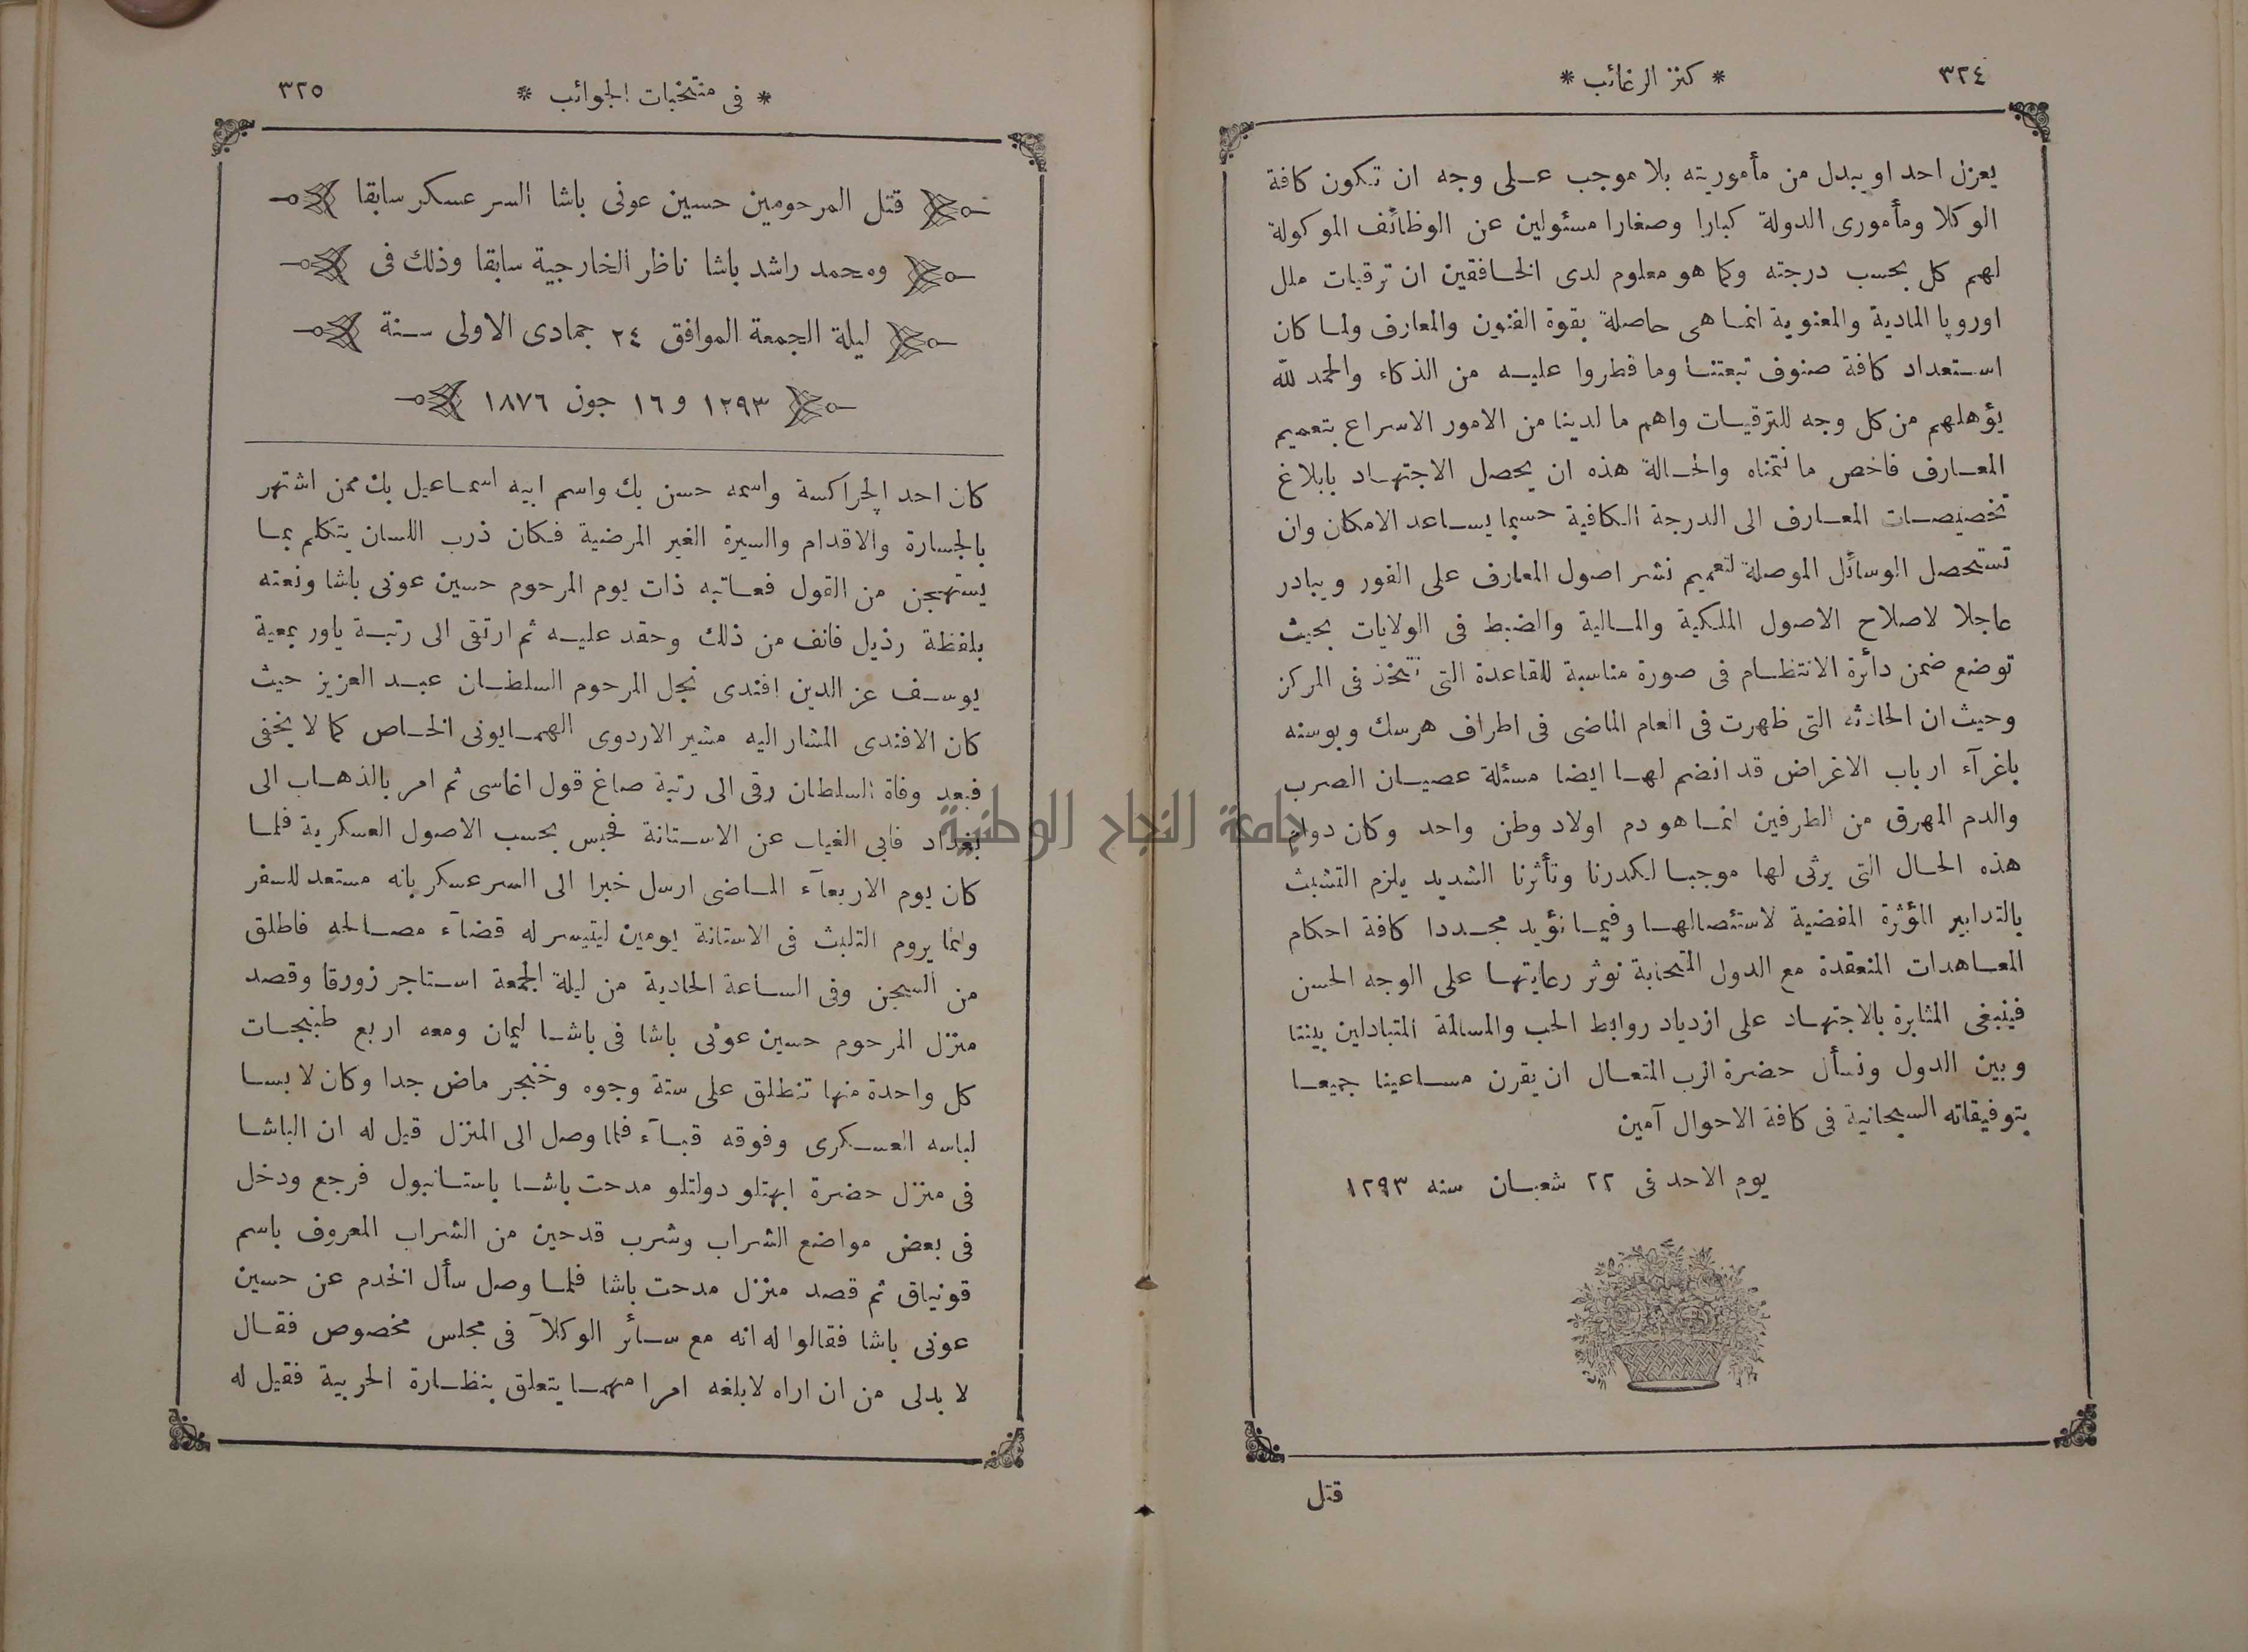 ٣٢٤
* كنز الرغائب *
يعزل احد او يبدل من مأموريته بلا موجب على وجه ان تكون كافة
الوكلا ومأمورى الدولة كبارا وصغارا مسئولين عن الوظائف الموكولة
لهم كل بحسب درجته وكما هو معلوم لدى الخافقين ان ترقيات ملل
اوروپا المادية والمعنوية انما هى حاصلة بقوة الفنون والمعارف ولما كان
استعداد كافة صنوف تبعتنا وما فطروا عليه من الذكاء والحمد لله
يؤهلهم من كل وجه للترقيات واهم ما لدينا من الامور الاسراع بتعميم
المعارف فاخص ما نتمناه والحالة هذه ان يحصل الاجتهاد بابلاغ
تخصيصات المعارف الى الدرجة الكافية حسبما يساعد الامكان وان
تستحصل الوسائل الموصلة لتعميم نشر اصول المعارف على الفور ويبادر
عاجلا لاصلاح الاصول الملكية والمالية والضبط فى الولايات بحيث
توضع ضمن دائرة الانتظام فى صورة مناسبة للقاعدة التى تتخذ فى المركز
وحيث ان الحادثه التى ظهرت فى العام الماضى فى اطراف هرسك وبوسنه
باغرآء ارباب الاغراض قد انضم لها ايضا مسئلة عصيان الصرب
والدم المهرق من الطرفين انما هو دم اولاد وطن واحد وكان دوام
هذه الحال التى يرثى لها موجبا لكدرنا وتأثرنا الشديد يلزم التشبث
بالتدابير المؤثرة المفضية لاستئصالها وفيما نؤيد مجددا كافة احكام
المعاهدات المنعقدة مع الدول المتحابة نوثر رعايتها على الوجه الحسن
فينبغى المثابرة بالاجتهاد على ازدياد روابط الحب والمسالمة المتبادلين بيننا
وبين الدول ونسأل حضرة الرب المتعال ان يقرن مساعينا جميعا
بتوفيقاته السبحانية فى كافة الاحوال آمين
يوم الاحد فى ٢٢ شعبان سنه ١٢٩٣
قتل
* فى منتخبات الجوائب *
٣٢٥
قتل المرحومين حسين عونى باشا السر عسكر سابقا
ومحمد راشد باشا ناظر الخارجية سابقا وذلك فى
ليلة الجمعة الموافق ٢٤ جمادى الاولى سنة
١٢٩٣ و ١٦ جون ١٨٧٦
كان احد الچراكسة واسمه حسن بك واسم ابيه اسماعيل بك ممن اشتهر
بالجسارة والاقدام والسيرة الغير المرضية فكان ذرب اللسان يتكلم بما
يستهجن من القول فعاتبه ذات يوم المرحوم حسين عونى باشا ونعته
بلفظة رذيل فانف من ذلك وحقد عليه ثم ارتقى الى رتبة ياور بمعية
يوسف عز الدين افندى نجل المرحوم السلطان عبد العزيز حيث
كان الافندى المشار اليه مشير الاردوى الهمايونى الخاص كما لا يخفى
فبعد وفاة السلطان رقى الى رتبة صاغ قول اغاسى ثم امر بالذهاب الى
بغداد فابى الغياب عن الاستانة فحبس بحسب الاصول العسكرية فلما
كان يوم الاربعآء الماضى ارسل خبرا الى السر عسكر بانه مستعد للسفر
وانما يروم التلبث فى الاستانة يومين ليتيسر له قضآء مصالحه فاطلق
من السجن وفى الساعة الحادية من ليلة الجمعة استاجر زورقا وقصد
منزل المرحوم حسين عونى باشا فى باشا ليمان ومعه اربع طبنجات
كل واحدة منها تنطلق على ستة وجوه وخنجر ماض جدا وكان لابسا
لباسه العسكرى وفوقه قبآء فلما وصل الى المنزل قيل له ان الباشا
فى منزل حضرة ابهتلو دولتلو مدحت باشا باستانبول فرجع ودخل
فى بعض مواضع الشراب وشرب قدحين من الشراب المعروف باسم
قونياق ثم قصد منزل مدحت باشا فلما وصل سأل الخدم عن حسين
عونى باشا فقالوا له انه مع سائر الوكلآ فى مجلس مخصوص فقال
لا بدلى من ان اراه لابلغه امرا مهما يتعلق بنظارة الحربية فقيل له
جامعة النجاح الوطنية